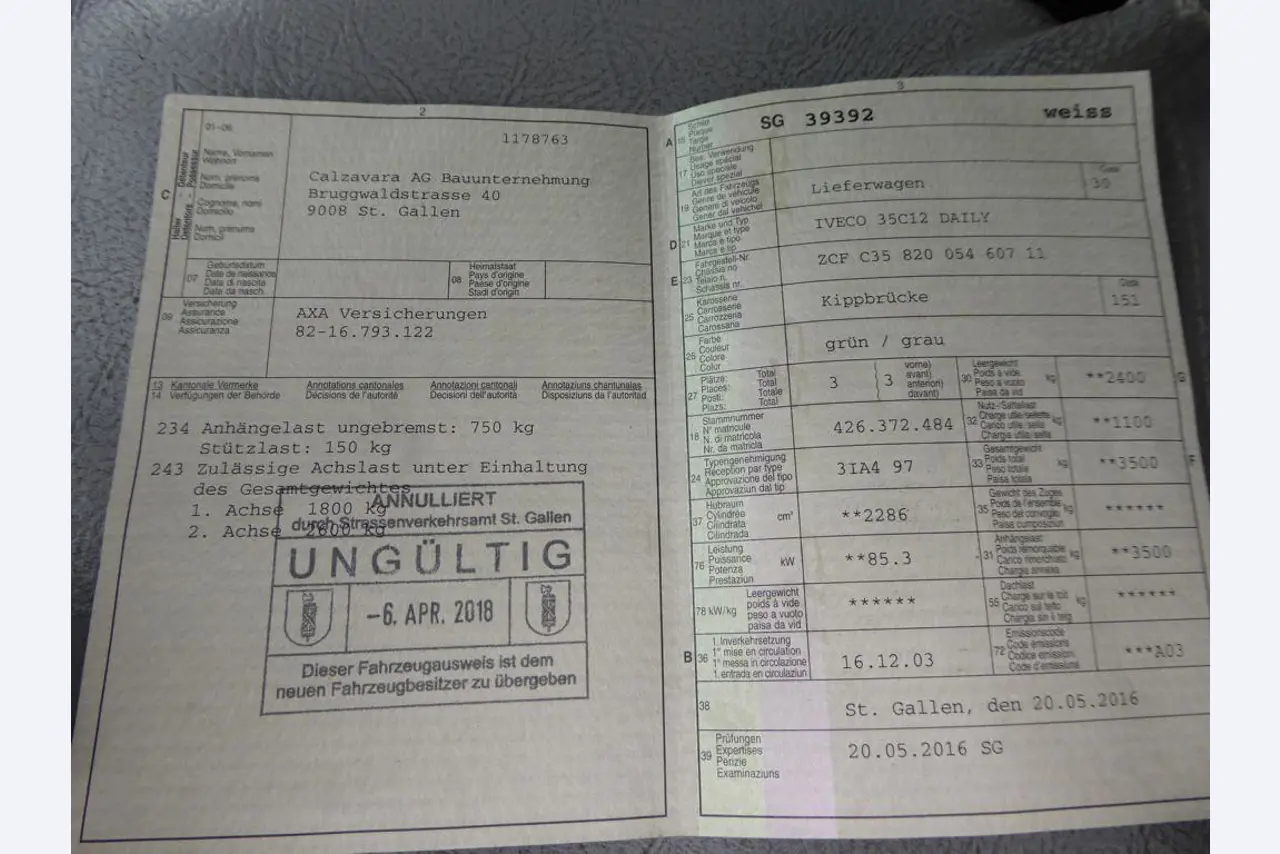 2
01-06
Name, Vornamen
Wohnort
Num, prénoms
Domicile
Cognome, nomi
Domicilio
Num, prenums
Domicil
C
Halter - Détenteur
Detentore - Possessur
1178763
Calzavara AG Bauunternehmung
Bruggwaldstrasse 40
9008 St. Gallen
07
Geburtsdatum
Date de naissance
Data di nascita
Data da nasch.
08
Heimatstaat
Pays d'origine
Paese d'origine
Stadi d'origin
09
Versicherung
Assurance
Assicurazione
Assicuranza
AXA Versicherungen
82-16.793.122
13 Kantonale Vermerke Annotations cantonales Annotazioni cantonali Annotaziuns chantunalas
14 Verfügungen der Behörde Décisions de l'autorité Decisioni dell'autorità Disposiziuns da l'autoritad
234 Anhängelast ungebremst: 750 kg
Stützlast: 150 kg
243 Zulässige Achslast unter Einhaltung
des Gesamtgewichtes
1. Achse 1800 kg
2. Achse 2600 kg
ANNULLIERT
durch Strassenverkehrsamt St. Gallen
UNGÜLTIG
-6. APR. 2018
Dieser Fahrzeugausweis ist dem
neuen Fahrzeugbesitzer zu übergeben
3
A 15
Schild
Plaque
Targa
Numer
SG 39392 weiss
17
Bes. Verwendung
Usage spécial
Uso speciale
Diever spezial
19
Art des Fahrzeugs
Genre de véhicule
Genere di veicolo
Gener dal vehichel
Lieferwagen
Code
30
D 21
Marke und Typ
Marque et type
Marca e tipo
Marca e tip
IVECO 35C12 DAILY
E 23
Fahrgestell-Nr.
Châssis no
Telaio n.
Schassis nr.
ZCF C35 820 054 607 11
25
Karosserie
Carrosserie
Carrozzeria
Carossaria
Kippbrücke
Code
151
26
Farbe
Couleur
Colore
Colur
grün / grau
27
Plätze: Total
Places: Total
Posti: Totale
Plazs: Total
3
3
vorne)
avant)
anteriori)
davant)
30
Leergewicht
Poids à vide
Peso a vuoto
Paisa da vid
kg
**2400
G
18
Stammnummer
N° matricule
N. di matricola
Nr. da matricla
426.372.484
32
Nutz-/Sattellast
Charge utile/sellette
Carico utile/sella
Chargia utila/sella
kg
**1100
24
Typengenehmigung
Réception par type
Approvazione del tipo
Approvaziun dal tip
3IA4 97
33
Gesamtgewicht
Poids total
Peso totale
Paisa totala
kg
**3500
F
37
Hubraum
Cylindrée
Cilindrata
Cilindrada
cm³
**2286
35
Gewicht des Zuges
Poids de l'ensemble
Peso del convoglio
Paisa cumposiziun
kg
******
76
Leistung
Puissance
Potenza
Prestaziun
kW
**85.3
31
Anhängelast
Poids remorquable
Carico rimorchiato
Chargia annexa
kg
**3500
78 kW/kg
Leergewicht
poids à vide
peso a vuoto
paisa da vid
******
55
Dachlast
Charge sur le toit
Carico sul tetto
Chargia sin il tetg
kg
******
B 36
1. Inverkehrsetzung
1re mise en circulation
1a messa in circolazione
1. entrada en circulaziun
16.12.03
72
Emissionscode
Code émissions
Codice emissioni
Code d'emissiuns
***A03
38
St. Gallen, den 20.05.2016
39
Prüfungen
Expertises
Perizie
Examinaziuns
20.05.2016 SG